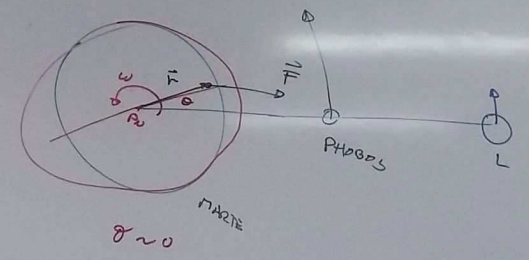 ω
r
F
θ
PHOBOS
L
MARTE